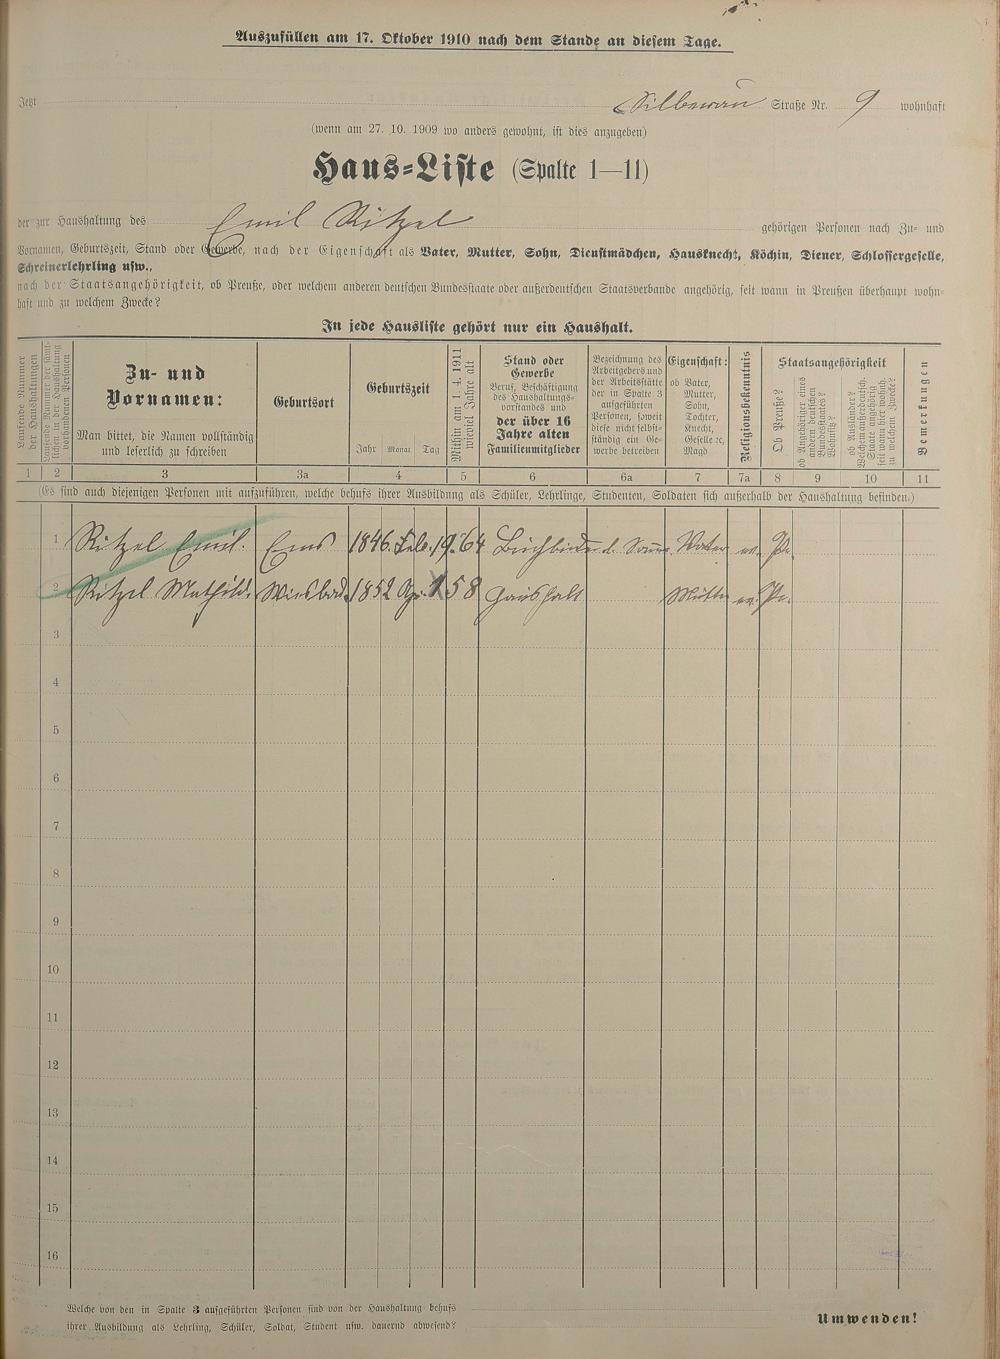 Auszufüllen am 17. Oktober 1910 nach dem Stande an diesem Tage.
Jetzt Straße Nr. 9 wohnhaft
(wenn am 27. 10. 1909 wo anders gewohnt, ist dies anzugeben)
Haus-Liste (Spalte 1—11)
der zur Haushaltung des Emil Ritzel gehörigen Personen nach Zu- und
Vornamen, Geburtszeit, Stand oder Gewerbe, nach der Eigenschaft als Vater, Mutter, Sohn, Dienstmädchen, Hausknecht, Köchin, Diener, Schlossergeselle,
Schreinerlehrling usw.,
nach der Staatsangehörigkeit, ob Preuße, oder welchem anderen deutschen Bundesstaate oder außerdeutschen Staatsverbande angehörig, seit wann in Preußen überhaupt wohn-
haft und zu welchem Zwecke?
In jede Hausliste gehört nur ein Haushalt.
Laufende Nummer
der Haushaltungen
Laufende Nummer der sämt-
lichen in der Haushaltung
vorhandenen Personen
Zu- und
Vornamen:
Man bittet, die Namen vollständig
und leserlich zu schreiben
Geburtsort
Geburtszeit
Jahr Monat Tag
Mithin am 1. 4. 1911
wieviel Jahre alt
Stand oder
Gewerbe
Beruf, Beschäftigung
des Haushaltungs-
vorstandes und
der über 16
Jahre alten
Familienmitglieder
Bezeichnung des
Arbeitgebers und
der Arbeitsstätte
der in Spalte 3
aufgeführten
Personen, soweit
diese nicht selbst-
ständig ein Ge-
werbe betreiben
Eigenschaft:
ob Vater,
Mutter,
Sohn,
Tochter,
Knecht,
Geselle ꝛc,
Magd
Religionsbekenntnis
Staatsangehörigkeit
Ob Preuße?
ob Angehöriger eines
andern deutschen
Bundesstaates?
Welches?
ob Ausländer?
Welchem außerdeutsch.
Staate angehörig
seit wann hier wohnh.
zu welchem Zwecke?
Bemerkungen
1 2 3 3a 4 5 6 6a 7 7a 8 9 10 11
(Es sind auch diejenigen Personen mit aufzuführen, welche behufs ihrer Ausbildung als Schüler, Lehrlinge, Studenten, Soldaten sich außerhalb der Haushaltung befinden.)
1 Ritzel Emil. Ems 1846. Feb. 19. 64 Vater ev. Pr.
2 Ritzel Mathild. Wiesbad. 1852 Apr. 1 58 Haushalt Mutter ev. Pr.
3
4
5
6
7
8
9
10
11
12
13
14
15
16
Welche von den in Spalte 3 aufgeführten Personen sind von der Haushaltung behufs
ihrer Ausbildung als Lehrling, Schüler, Soldat, Student usw. dauernd abwesend?
Umwenden!